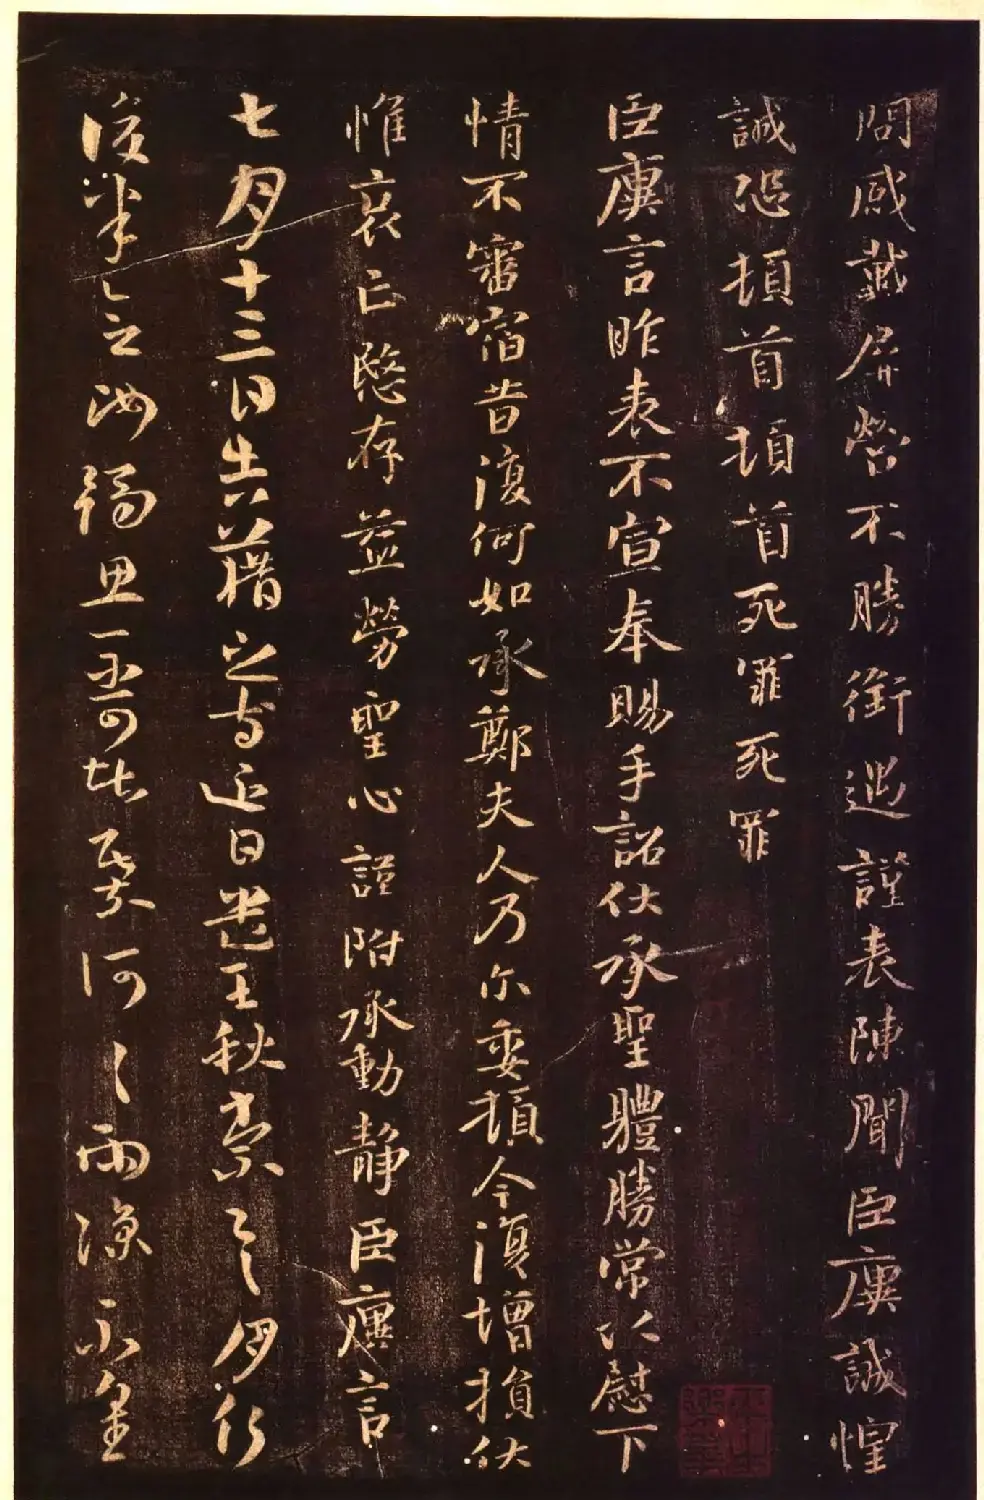 問感戴屏營不勝銜遇謹表陳聞臣廙誠惶
誠恐頓首頓首死罪死罪
臣廙言昨表不宣奉賜手詔伏承聖體勝常以慰下
情不審宿昔復何如承鄭夫人乃尔委頓今復增損伏
惟哀亡愍存益勞聖心謹附承動静臣廙言
七月十三日告藉之等近日遣王秋月行
復半汝獨思可奈何〻雨涼不